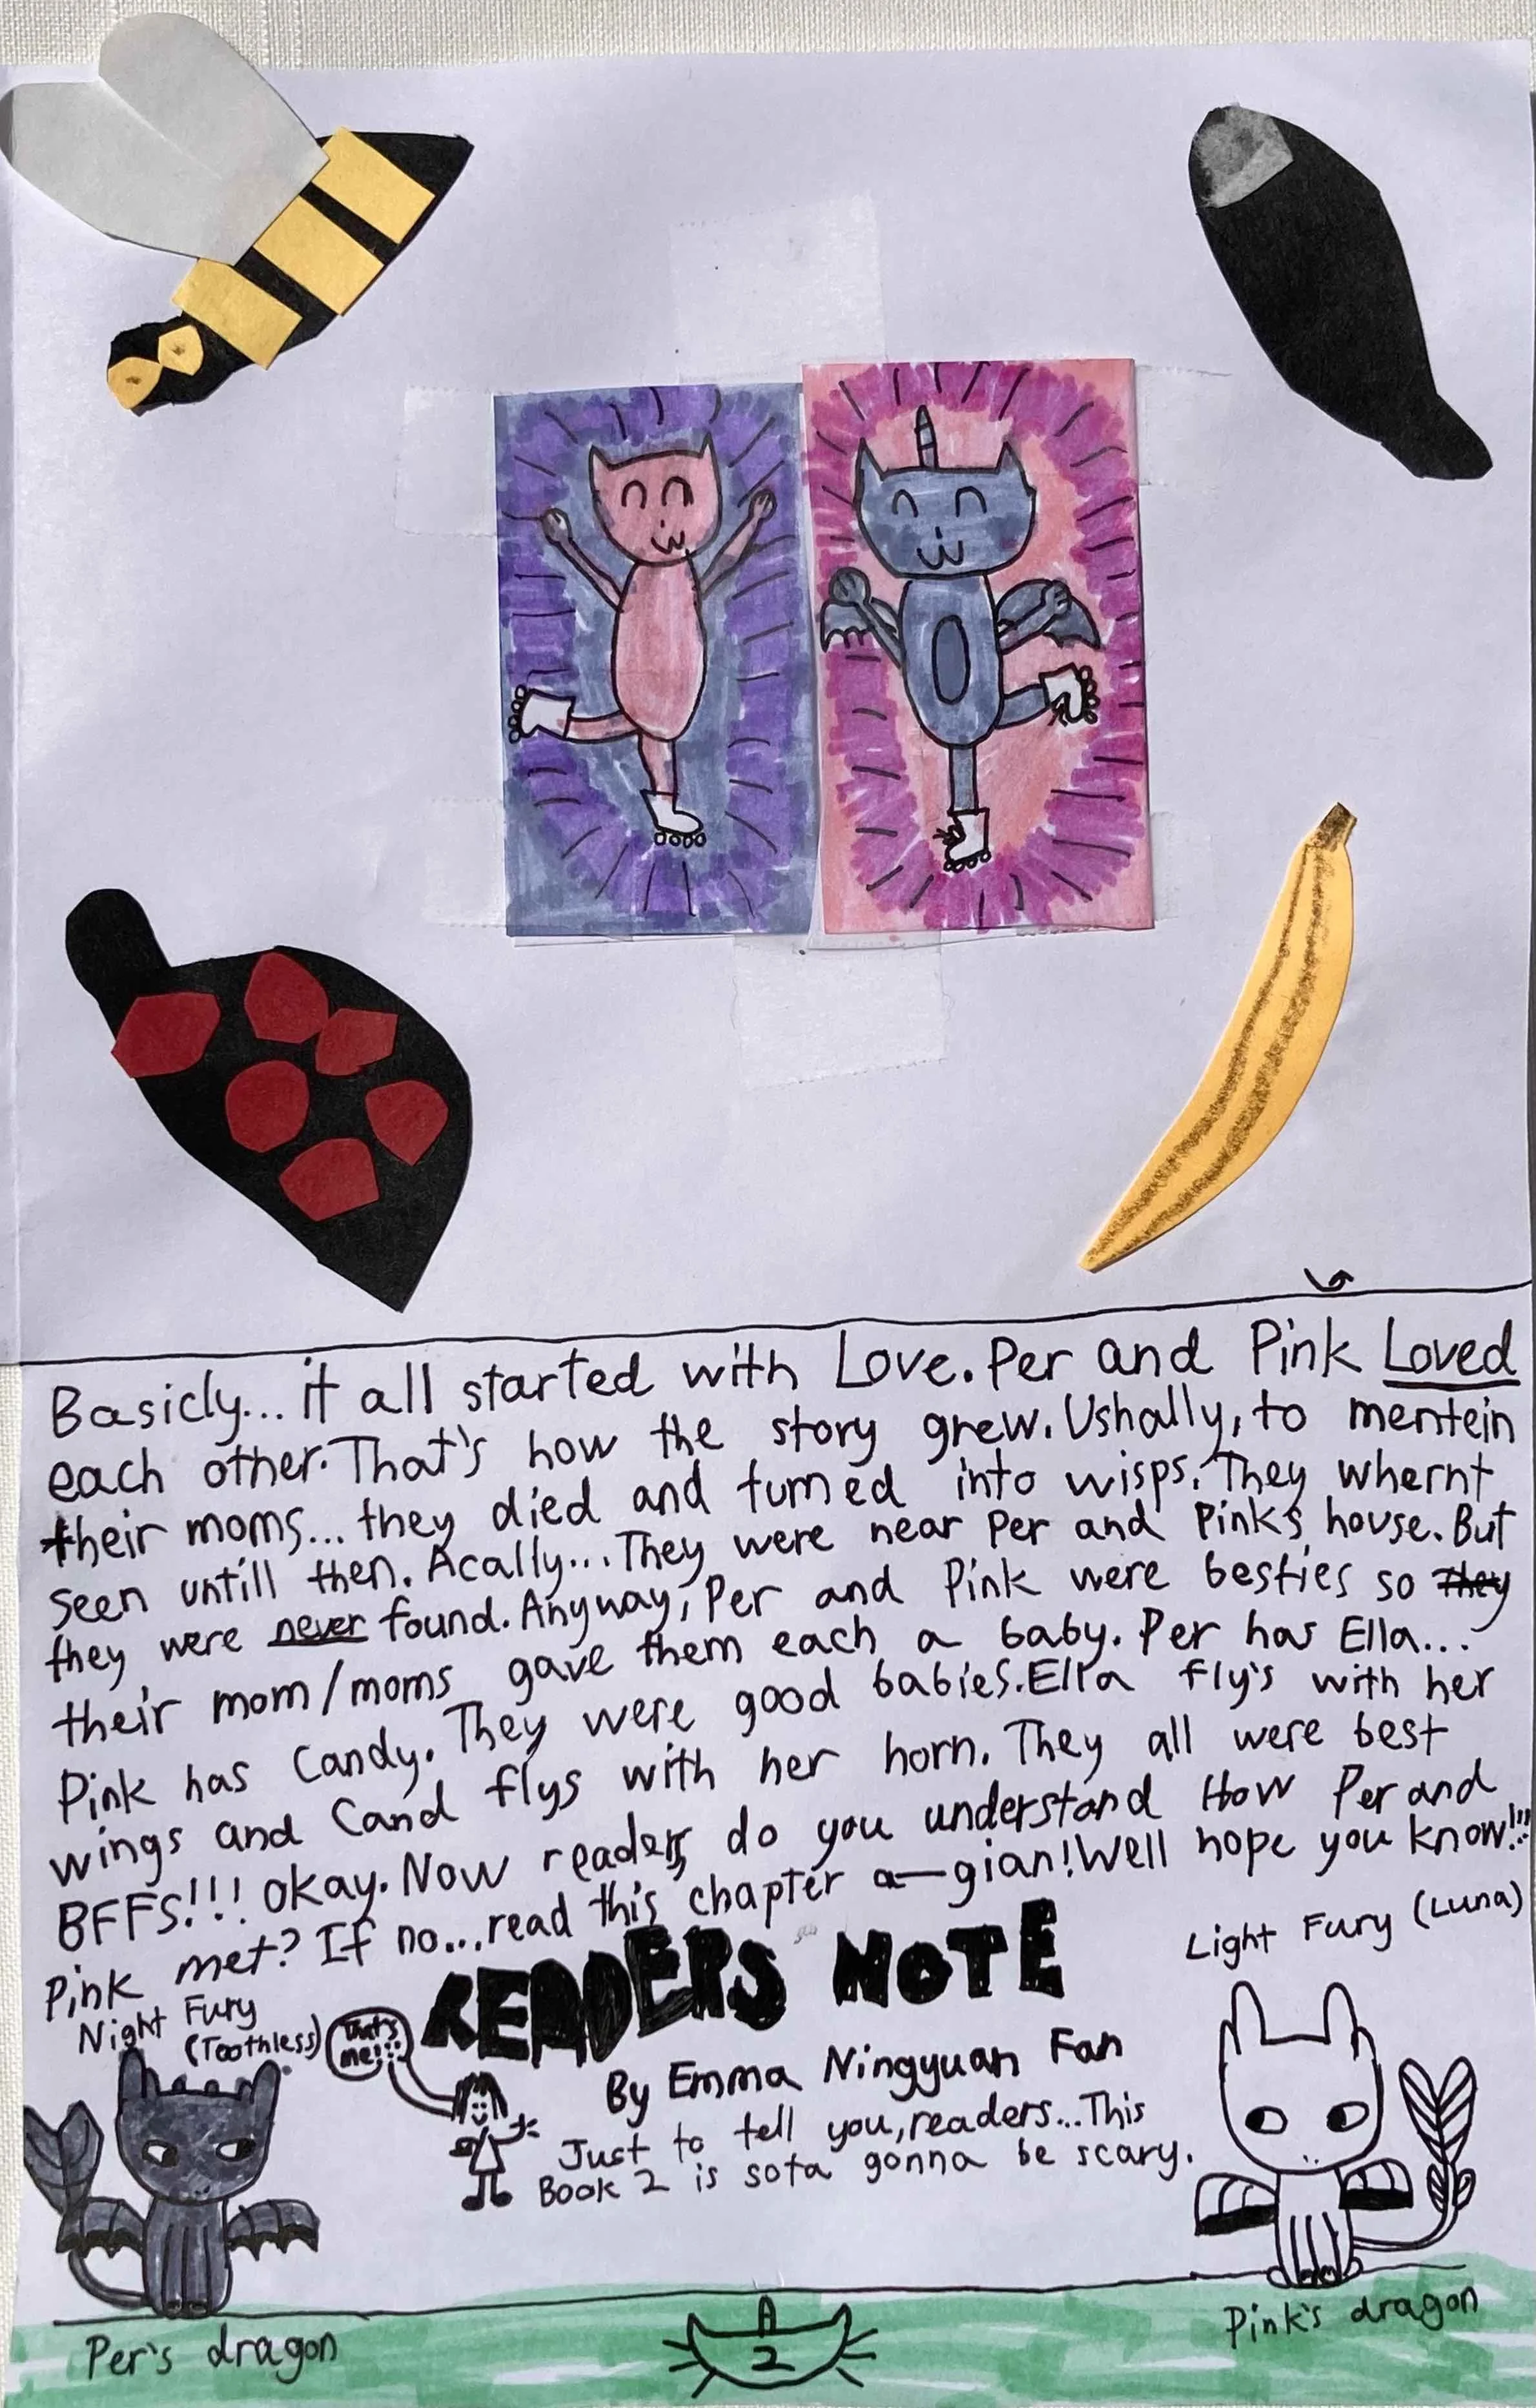 Basicly... it all started with Love. Per and Pink Loved
each other. That's how the story grew. Ushally, to mentein
their moms... they died and turned into wisps. They whernt
seen untill then. Acally... They were near Per and Pink's house. But
they were never found. Anyway, Per and Pink were besties so they
their mom/moms gave them each a baby. Per has Ella...
Pink has Candy. They were good babies. Ella fly's with her
wings and Cand flys with her horn. They all were best
BFFS!!! Okay. Now readers, do you understand How Per and
Pink met? If no... read this chapter a-gian! Well hope you know!!!
Night Fury
(Toothless)
That's
me!!!
READERS NOTE
Light Fury (Luna)
By Emma Ningyuan Fan
Just to tell you, readers... This
Book 2 is sota gonna be scary.
Per's dragon
2
Pink's dragon